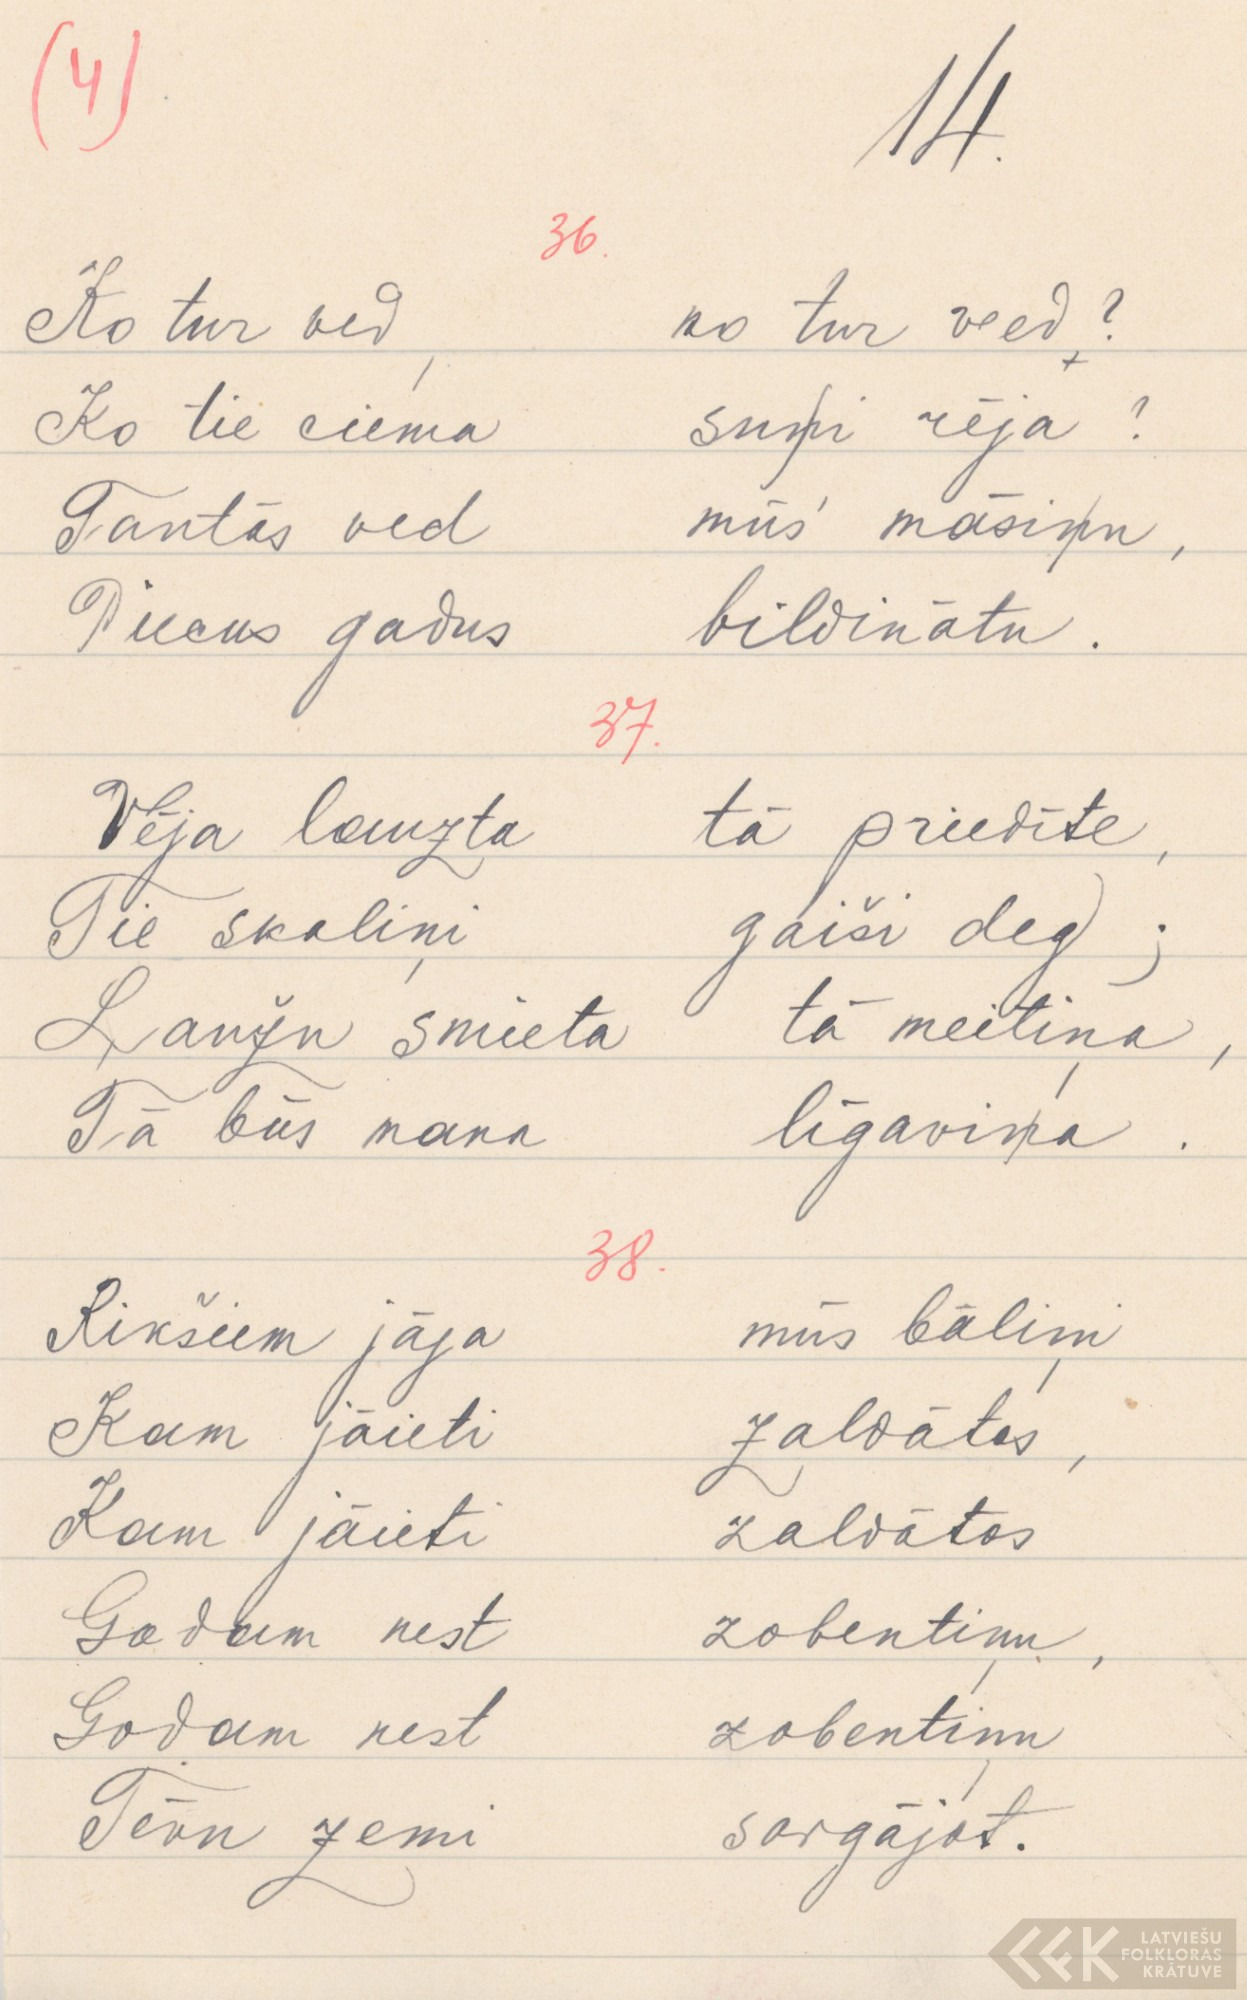 (4)
14.
36.
Ko tur ved, ko tur veed?
Ko tie ciema suņi rēja?
Tautās ved mūs' māsiņu,
Piecus gadus bildinātu.
37.
Vēja lauzta tā priedīte,
Tie skaliņi gaiši deg;
Laužu smieta tā meitiņa,
Tā būs mana līgaviņa.
38.
Rikšiem jāja mūs bāliņi
Kam jāieti zaldātos,
Kam jāieti zaldātos
Godam nest zobentiņu,
Godam nest zobentiņu
Tēvu zemi sargājot.
LATVIEŠU
FOLKLORAS
KRĀTUVE